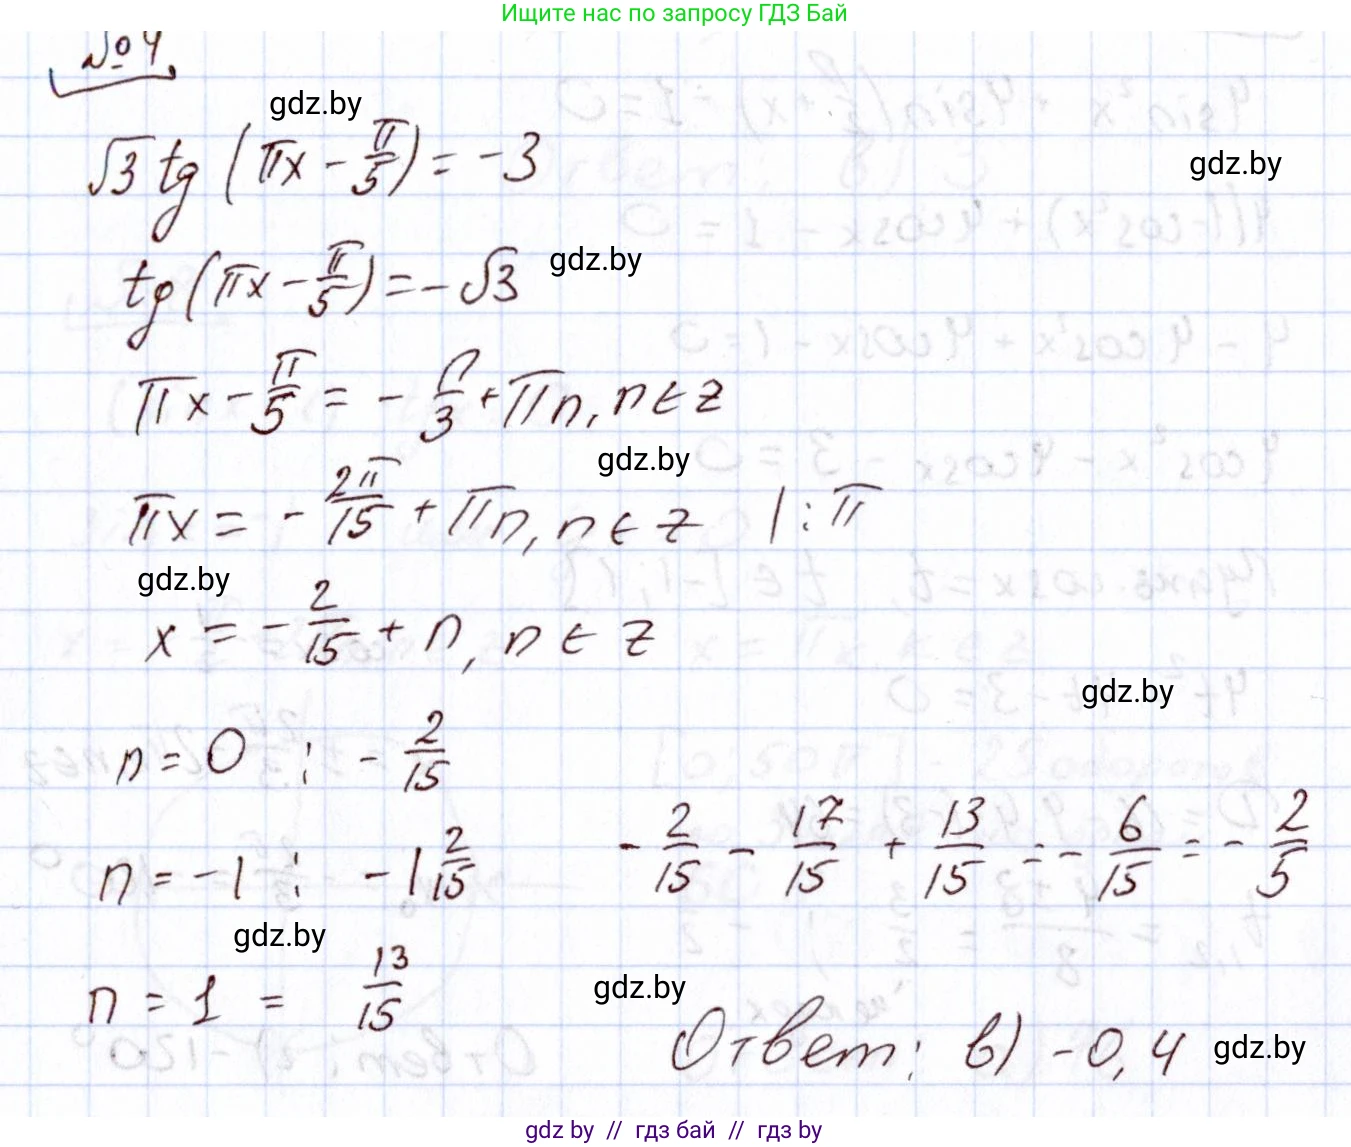 Ищите нас по запросу ГДЗ Бай
№ 4
gdz.by
√3 tg (πx − π/5) = −3
gdz.by
tg (πx − π/5) = −√3
gdz.by
πx − π/5 = − π/3 + πn, n ∈ z
gdz.by
πx = − 2π/15 + πn, n ∈ z | : π
gdz.by
x = − 2/15 + n, n ∈ z
gdz.by
n = 0 : − 2/15
n = −1 : −1 2/15
− 2/15 − 17/15 + 13/15 = − 6/15 = − 2/5
gdz.by
n = 1 = 13/15
gdz.by
Ответ: в) −0,4
gdz.by
gdz by // гдз бай // гдз by